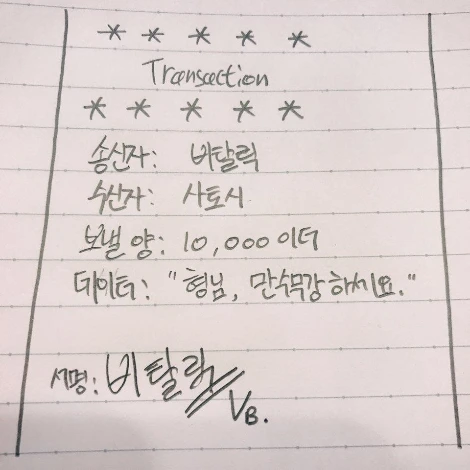 * * * * *
Transaction
* * * * *
송신자: 비탈릭
수신자: 사토시
보낼 양: 10,000 이더
데이터: "형님, 만수무강 하세요."
서명: 비탈릭
VB.